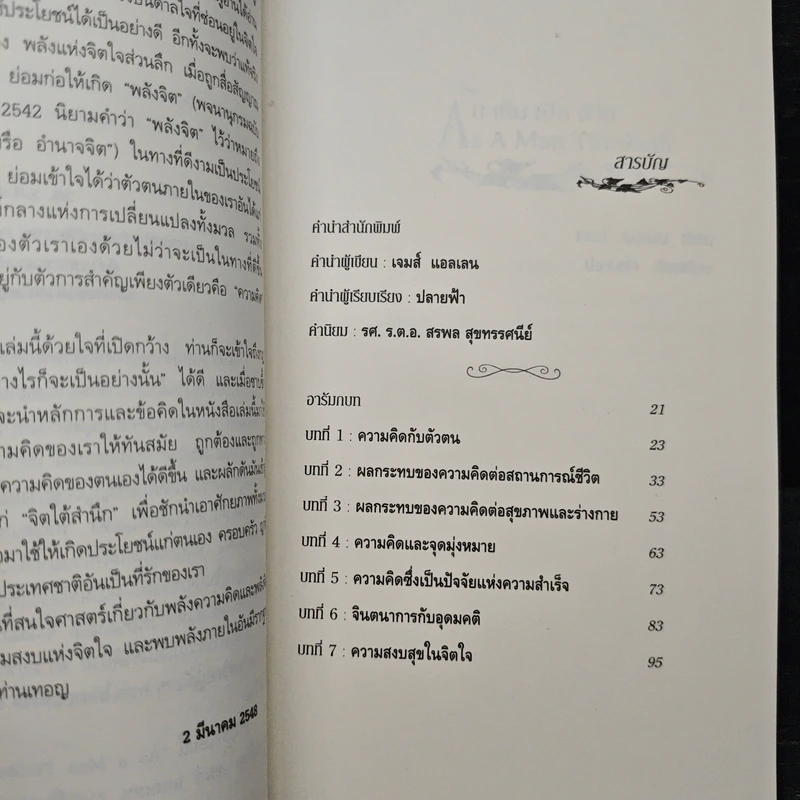 ประโยชน์ได้เป็นอย่างดี อีกทั้งจะพบว่าแท้จริง
พลังแห่งจิตใจส่วนลึก เมื่อถูกสื่อสัญญาณ
ย่อมก่อให้เกิด “พลังจิต” (พจนานุกรมฉบับ
2542 นิยามคำว่า “พลังจิต” ไว้ว่าหมายถึง
รือ อำนาจจิต”) ในทางที่ดีงามเป็นประโยชน์
ย่อมเข้าใจได้ว่าตัวตนภายในของเราอันได้แก่
กลางแห่งการเปลี่ยนแปลงทั้งมวล รวมทั้ง
องตัวเราเองด้วยไม่ว่าจะเป็นในทางที่ดีขึ้น
ยู่กับตัวการสำคัญเพียงตัวเดียวคือ “ความคิด”
เล่มนี้ด้วยใจที่เปิดกว้าง ท่านก็จะเข้าใจถึง
างไรก็จะเป็นอย่างนั้น” ได้ดี และเมื่อ
จะนำหลักการและข้อคิดในหนังสือเล่มนี้
ามคิดของเราให้ทันสมัย ถูกต้องและถูก
ความคิดของตนเองได้ดีขึ้น และผลักดัน
ก่ “จิตใต้สำนึก” เพื่อชักนำเอาศักยภาพทั้ง
มาใช้ให้เกิดประโยชน์แก่ตนเอง ครอบครัว
ประเทศชาติอันเป็นที่รักของเรา
ที่สนใจศาสตร์เกี่ยวกับพลังความคิดและพลัง
มสงบแห่งจิตใจ และพบพลังภายในอันมี
ท่านเทอญ
2 มีนาคม 2548
สารบัญ
คำนำสำนักพิมพ์
คำนำผู้เขียน : เจมส์ แอลเลน
คำนำผู้เรียบเรียง : ปลายฟ้า
คำนิยม : รศ. ร.ต.อ. สรพล สุขทรรศนีย์
อารัมภบท 21
บทที่ 1 : ความคิดกับตัวตน 23
บทที่ 2 : ผลกระทบของความคิดต่อสถานการณ์ชีวิต 33
บทที่ 3 : ผลกระทบของความคิดต่อสุขภาพและร่างกาย 53
บทที่ 4 : ความคิดและจุดมุ่งหมาย 63
บทที่ 5 : ความคิดซึ่งเป็นปัจจัยแห่งความสำเร็จ 73
บทที่ 6 : จินตนาการกับอุดมคติ 83
บทที่ 7 : ความสงบสุขในจิตใจ 95